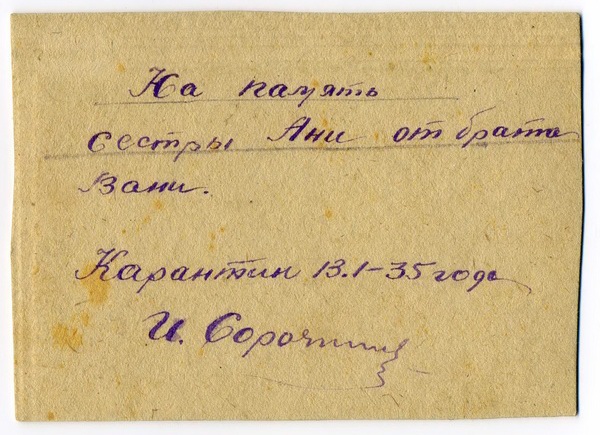 На память
сестры Ани от брата
Вани.
Карантин 13.1-35 года
И.